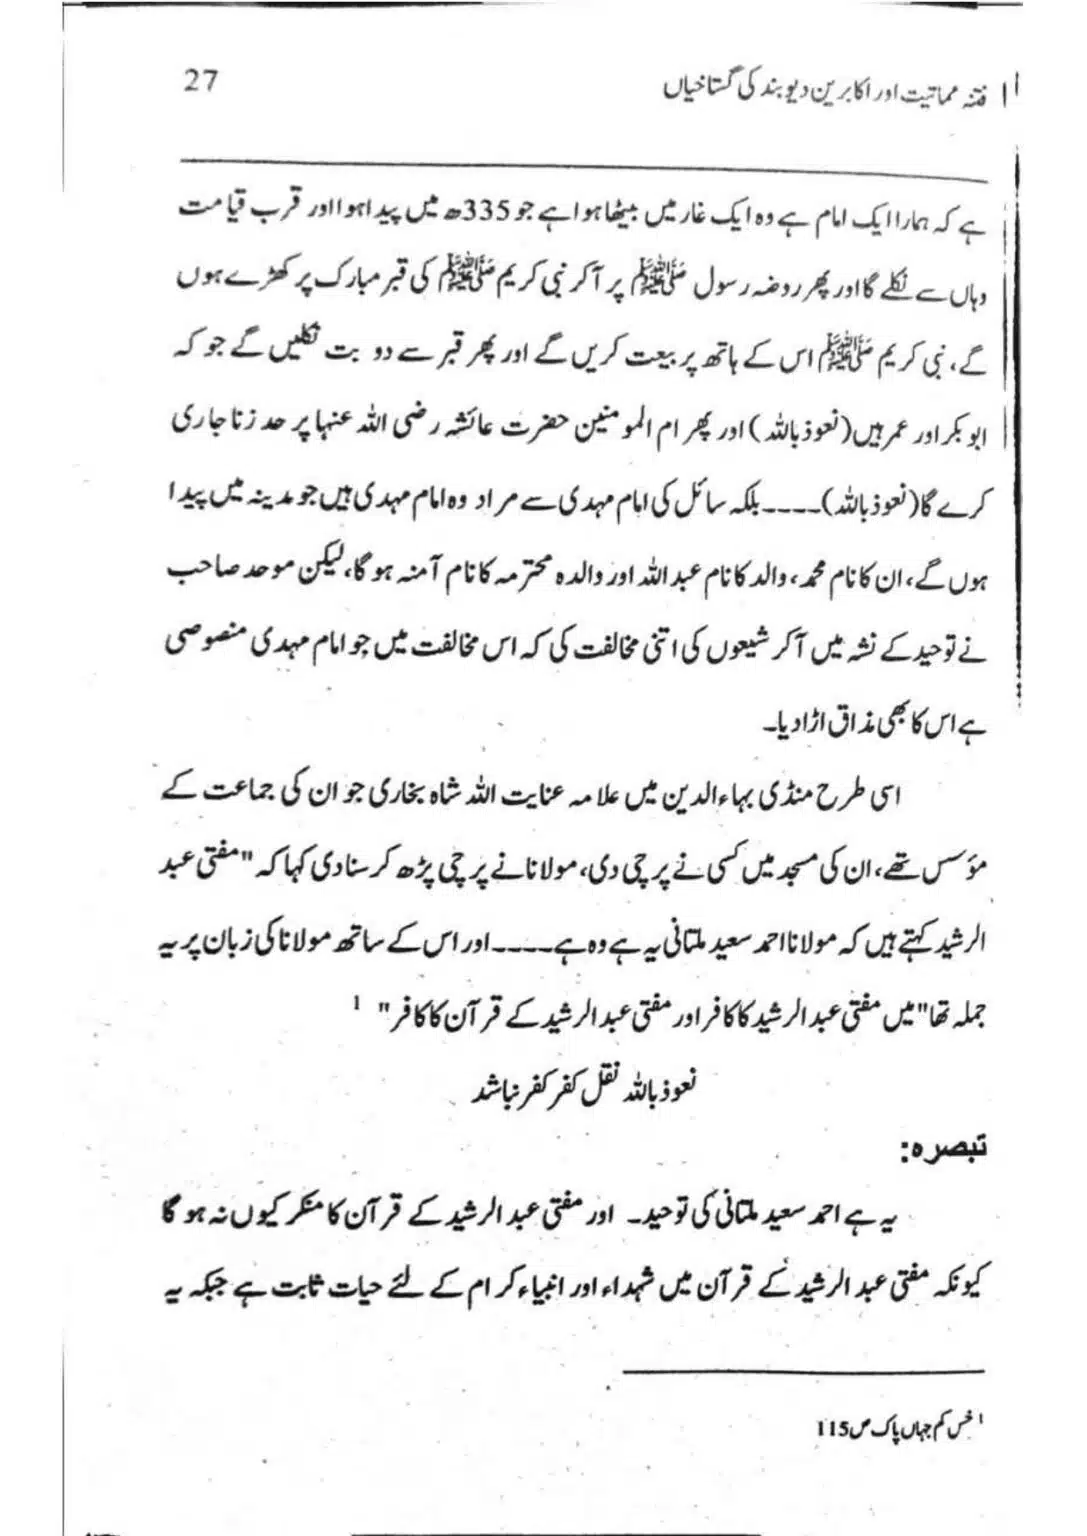 فتنہ مماتیت اور اکابرین دیوبند کی گستاخیاں 27
ہے کہ ہمارا ایک امام ہے وہ ایک غار میں بیٹھا ہوا ہے جو 335ھ میں پیدا ہوا اور قرب قیامت
وہاں سے نکلے گا اور پھر روضہ رسول ﷺ پر آکر نبی کریم ﷺ کی قبر مبارک پر کھڑے ہوں
گے، نبی کریم ﷺ اس کے ہاتھ پر بیعت کریں گے اور پھر قبر سے دو بت نکلیں گے جو کہ
ابو بکر اور عمر ہیں (نعوذ باللہ) اور پھر ام المومنین حضرت عائشہ رضی اللہ عنہا پر حد زنا جاری
کرے گا (نعوذ باللہ)۔۔۔۔ بلکہ سائل کی امام مہدی سے مراد وہ امام مہدی ہیں جو مدینہ میں پیدا
ہوں گے، ان کا نام محمد، والد کا نام عبد اللہ اور والدہ محترمہ کا نام آمنہ ہو گا، لیکن موحد صاحب
نے توحید کے نشہ میں آکر شیعوں کی اتنی مخالفت کی کہ اس مخالفت میں جو امام مہدی منصوصی
ہے اس کا بھی مذاق اڑا دیا۔
اسی طرح منڈی بہاءالدین میں علامہ عنایت اللہ شاہ بخاری جو ان کی جماعت کے
مؤسس تھے، ان کی مسجد میں کسی نے پرچی دی، مولانا نے پرچی پڑھ کر سنا دی کہا کہ "مفتی عبد
الرشید کہتے ہیں کہ مولانا احمد سعید ملتانی یہ ہے وہ ہے۔۔۔۔ اور اس کے ساتھ مولانا کی زبان پر یہ
جملہ تھا "میں مفتی عبد الرشید کا کافر اور مفتی عبد الرشید کے قرآن کا کافر" 1
نعوذ باللہ نقل کفر کفر نباشد
تبصرہ:
یہ ہے احمد سعید ملتانی کی توحید۔ اور مفتی عبد الرشید کے قرآن کا منکر کیوں نہ ہو گا
کیونکہ مفتی عبد الرشید کے قرآن میں شہداء اور انبیاء کرام کے لئے حیات ثابت ہے جبکہ یہ
1 خس کم جہاں پاک ص 115